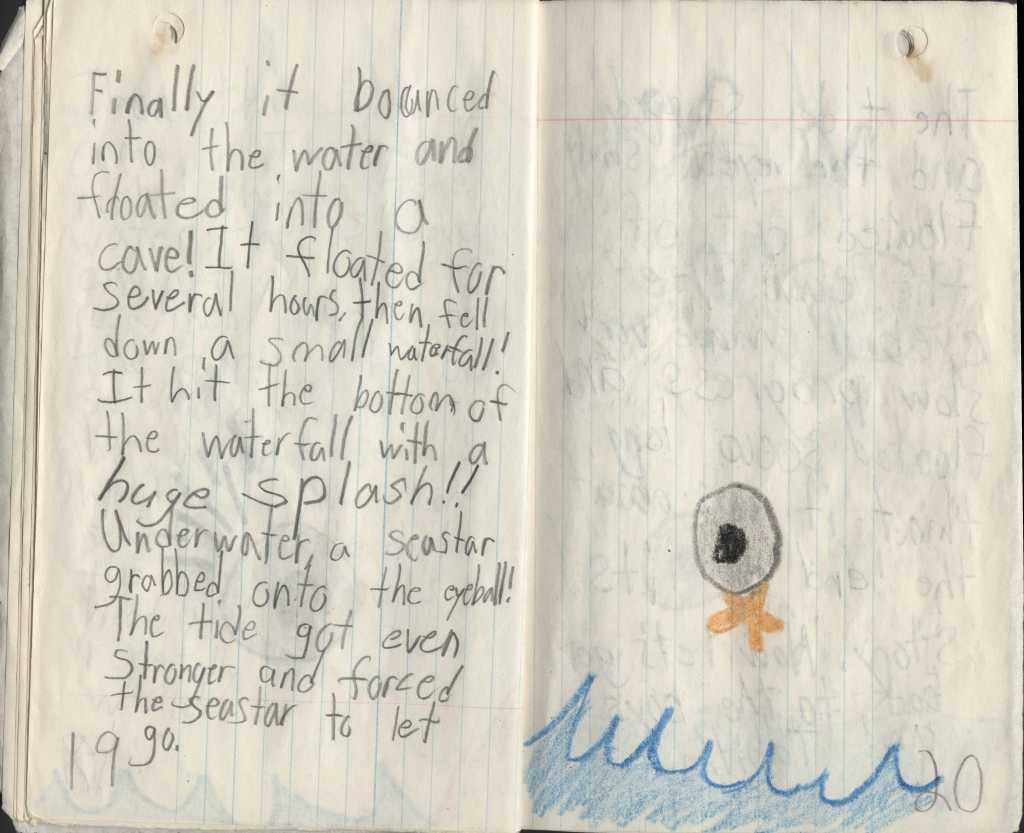 Finally it bounced
into the water and
floated into a
cave! It floated for
several hours, then, fell
down a small waterfall!
It hit the bottom of
the waterfall with a
huge splash!!
Underwater, a seastar
grabbed onto the eyeball!
The tide got even
stronger and forced
the seastar to let
go.
19
20